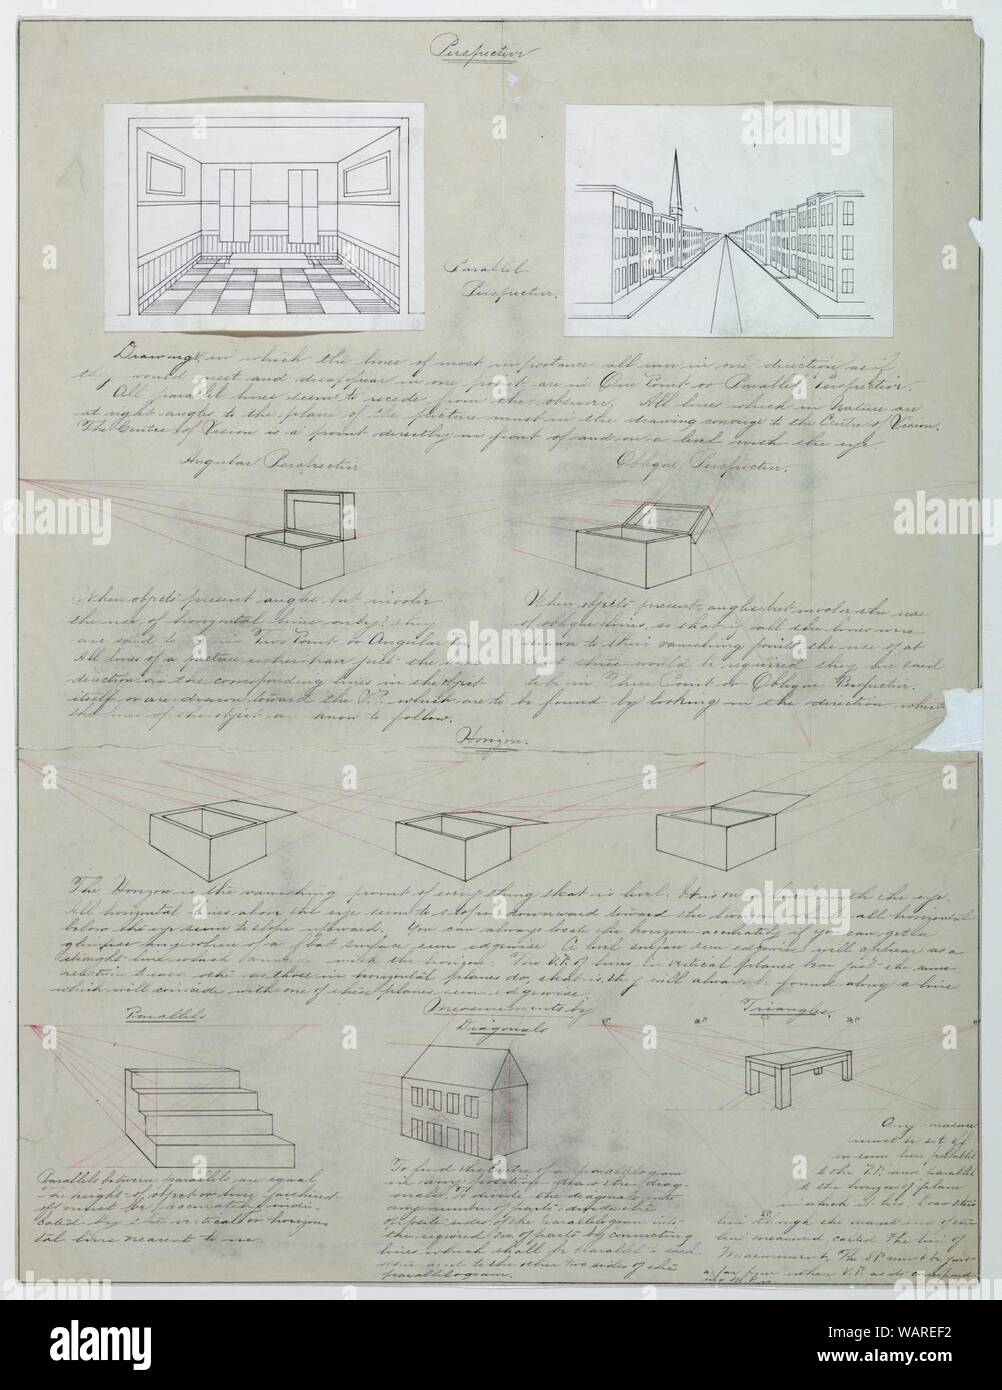 Perspective
Parallel
Perspective.
Drawings, in which the lines of most importance all run in one direction as if
they would meet and disappear in one point are in One Point or Parallel Perspective.
All parallel lines seem to recede from the observer. All lines which in Nature are
at right angles to the plane of the picture must in the drawing converge to the Centre of Vision.
The Centre of Vision is a point directly in front of and on a level with the eye.
Angular Perspective
Oblique Perspective.
When objects present angles but involve
the use of horizontal lines only, they
are said to be in Two Point or Angular Per.
All lines of a picture must the
direction as the corresponding lines in the object
itself or are drawn toward the V.P. which are to be found by looking in the direction which
the lines of the object are known to follow.
When objects present angles but involve the use
of oblique lines, so that if all the lines were
drawn to their vanishing points the use of at
least three would be required they are said
to be in Three Point or Oblique Perspective.
Horizon.
The Horizon is the vanishing point of every thing that is level. It is on a level with the eye.
All horizontal lines above the eye seem to slope downward toward the horizon while all horizontal
below the eye seem to slope upward. You can always locate the horizon accurately if you can get a
glimpse anywhere of a flat surface seen edgewise. A level surface seen edgewise will appear as a
straight line which with the horizon. The V.P. of lines in vertical planes bear just the same
relation to each other as those in horizontal planes do, that is, they will always be found along a line
which will coincide with one of these planes seen edgewise.
Parallels
Measurements by
Diagonals
Triangles.
V.P. M.P. C.V. M.P. V.P.
Parallels between parallels are equal.
The height of object or lines farthest
off must be accurately indi-
cated by the vertical or horizon-
tal line nearest to us.
To find the centre of a parallelogram
in any position draw the diag-
onals. To divide the diagonals into
any number of parts divide the
opposite sides of the parallelogram into
the required No. of parts by connecting
lines which shall be parallel to each
other and to the other two sides of the
parallelogram.
Any measure
must be set off
on some line parallel
to the P.P. and parallel
to the horizon of plane
in which it lies. Draw this
S.P.
line through the nearest end of
line measured, called The line of
Measurement. The M.P. must be just
as far from either V.P. as
alamy
a
Image ID: WAREF2
www.alamy.com